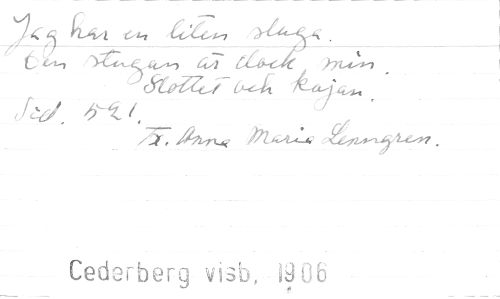 Jag har en liten stuga.
Den stugan är dock min.
Slottet och kojan.
Sid. 521.
Fr. Anna Maria Lenngren.
Cederberg visb, 1906